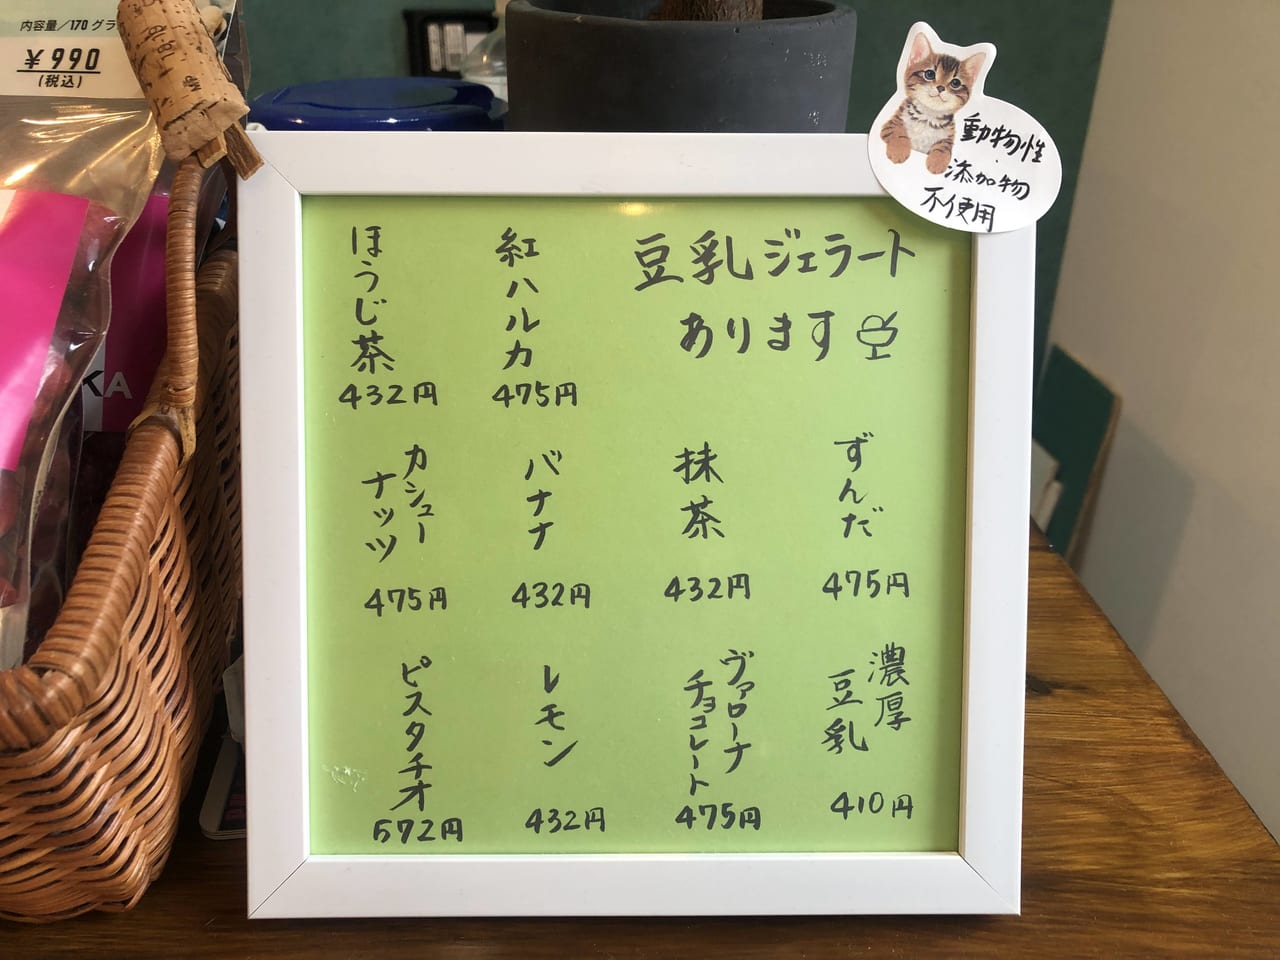 内容量/170グラ
¥990
(税込)
KA
動物性
添加物
不使用
豆乳ジェラート
あります
紅ハルカ
475円
ほうじ茶
432円
ずんだ
475円
抹茶
432円
バナナ
432円
カシュー
ナッツ
475円
濃厚
豆乳
410円
ヴァローナ
チョコレート
475円
レモン
432円
ピスタチオ
572円